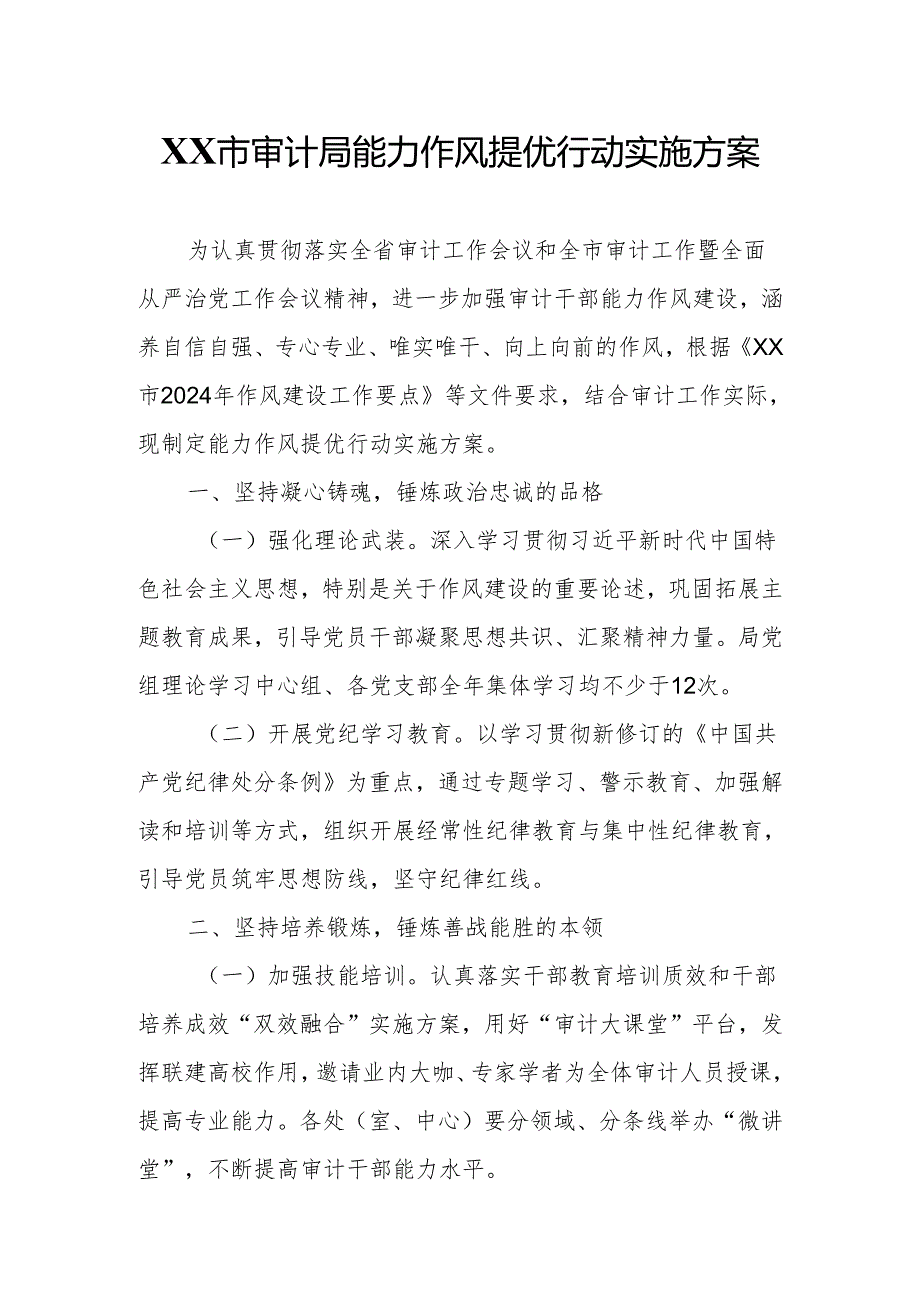 XX市审计局能力作风提优行动实施方案
为认真贯彻落实全省审计工作会议和全市审计工作暨全面
从严治党工作会议精神，进一步加强审计干部能力作风建设，涵
养自信自强、专心专业、唯实唯干、向上向前的作风，根据《XX
市2024年作风建设工作要点》等文件要求，结合审计工作实际，
现制定能力作风提优行动实施方案。
一、坚持凝心铸魂，锤炼政治忠诚的品格
（一）强化理论武装。深入学习贯彻习近平新时代中国特
色社会主义思想，特别是关于作风建设的重要论述，巩固拓展主
题教育成果，引导党员干部凝聚思想共识、汇聚精神力量。局党
组理论学习中心组、各党支部全年集体学习均不少于12次。
（二）开展党纪学习教育。以学习贯彻新修订的《中国共
产党纪律处分条例》为重点，通过专题学习、警示教育、加强解
读和培训等方式，组织开展经常性纪律教育与集中性纪律教育，
引导党员筑牢思想防线，坚守纪律红线。
二、坚持培养锻炼，锤炼善战能胜的本领
（一）加强技能培训。认真落实干部教育培训质效和干部
培养成效“双效融合”实施方案，用好“审计大课堂”平台，发
挥联建高校作用，邀请业内大咖、专家学者为全体审计人员授课，
提高专业能力。各处（室、中心）要分领域、分条线举办“微讲
堂”，不断提高审计干部能力水平。